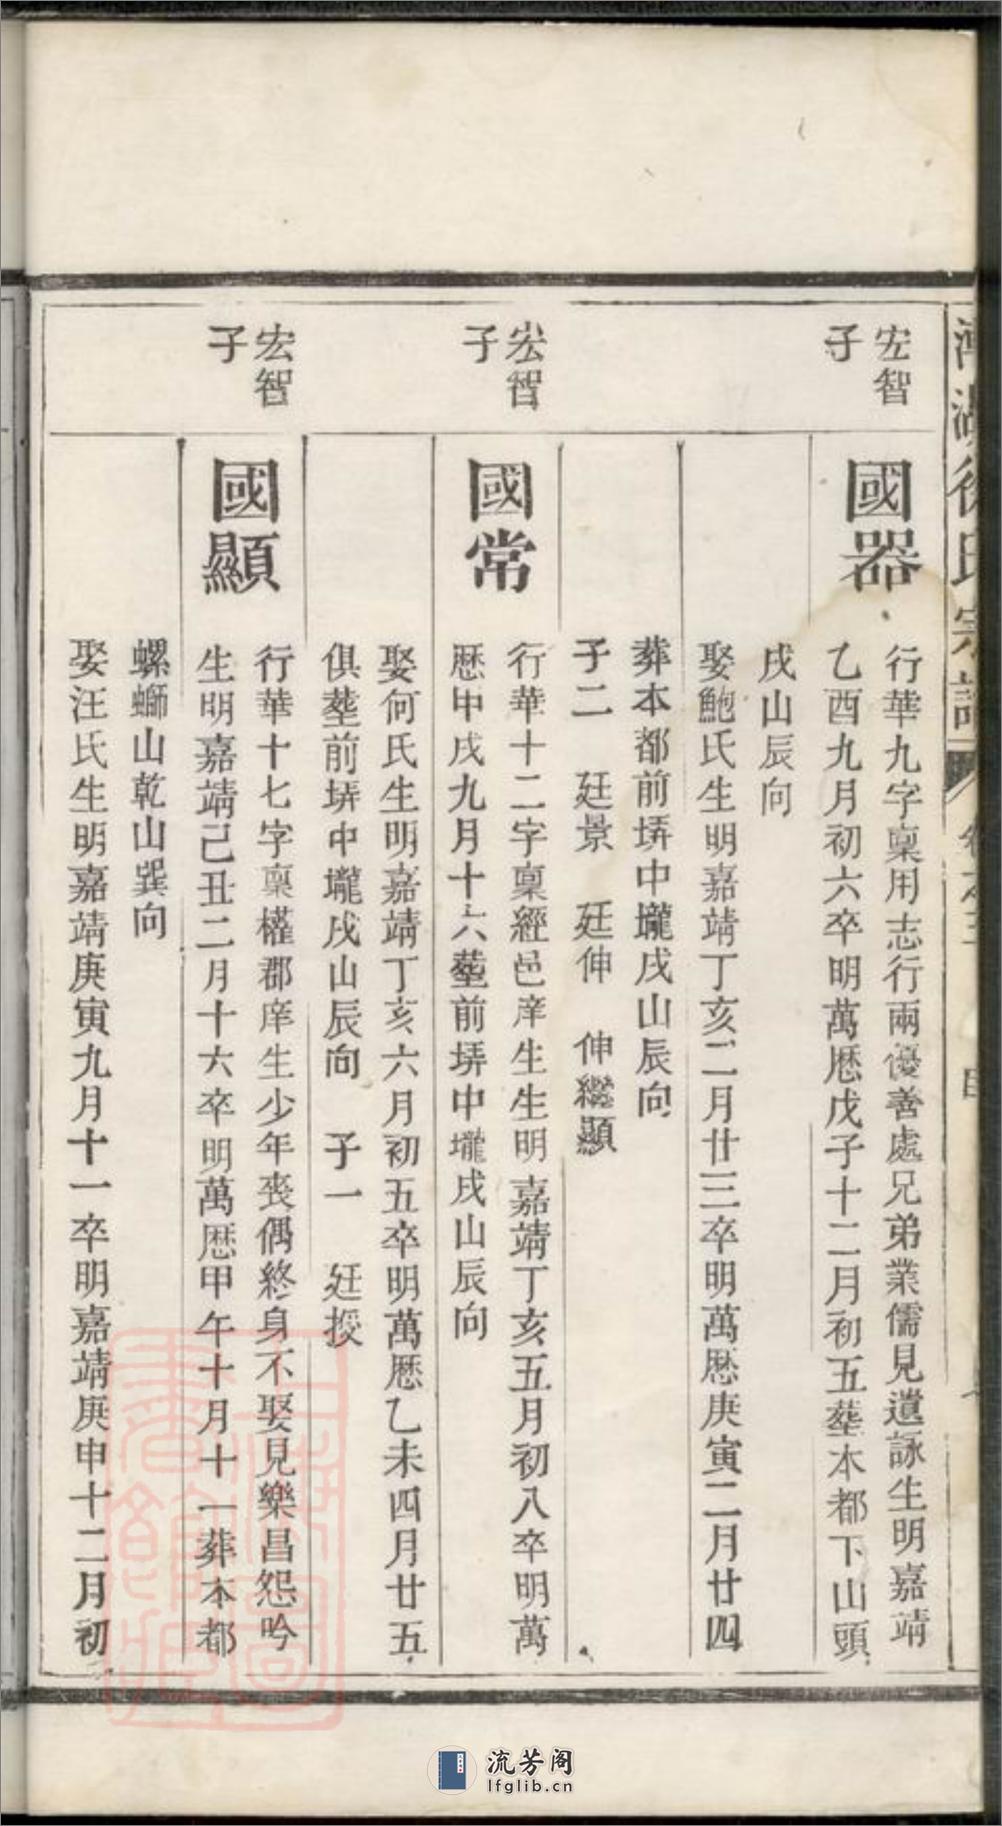 宏智
子
國器
行華九字稟用志行兩優善處兄弟業儒見遺詠生明嘉靖
乙酉九月初六卒明萬厯戊子十二月初五塟本都下山頭
戌山辰向
娶鮑氏生明嘉靖丁亥二月廿三卒明萬厯庚寅二月廿四
葬本都前塝中壠戌山辰向
子二 廷景 廷伸 伸繼顯
宏智
子
國常
行華十二字稟經邑庠生生明嘉靖丁亥五月初八卒明萬
厯甲戌九月十六塟前塝中壠戌山辰向
娶何氏生明嘉靖丁亥六月初五卒明萬厯乙未四月廿五
俱塟前塝中壠戌山辰向 子一 廷授
宏智
子
國顯
行華十七字稟權郡庠生少年喪偶終身不娶見樂昌怨吟
生明嘉靖己丑二月十六卒明萬厯甲午十月十一葬本都
螺螄山乾山巽向
娶汪氏生明嘉靖庚寅九月十一卒明嘉靖庚申十二月初
流芳阁
lfglib.cn